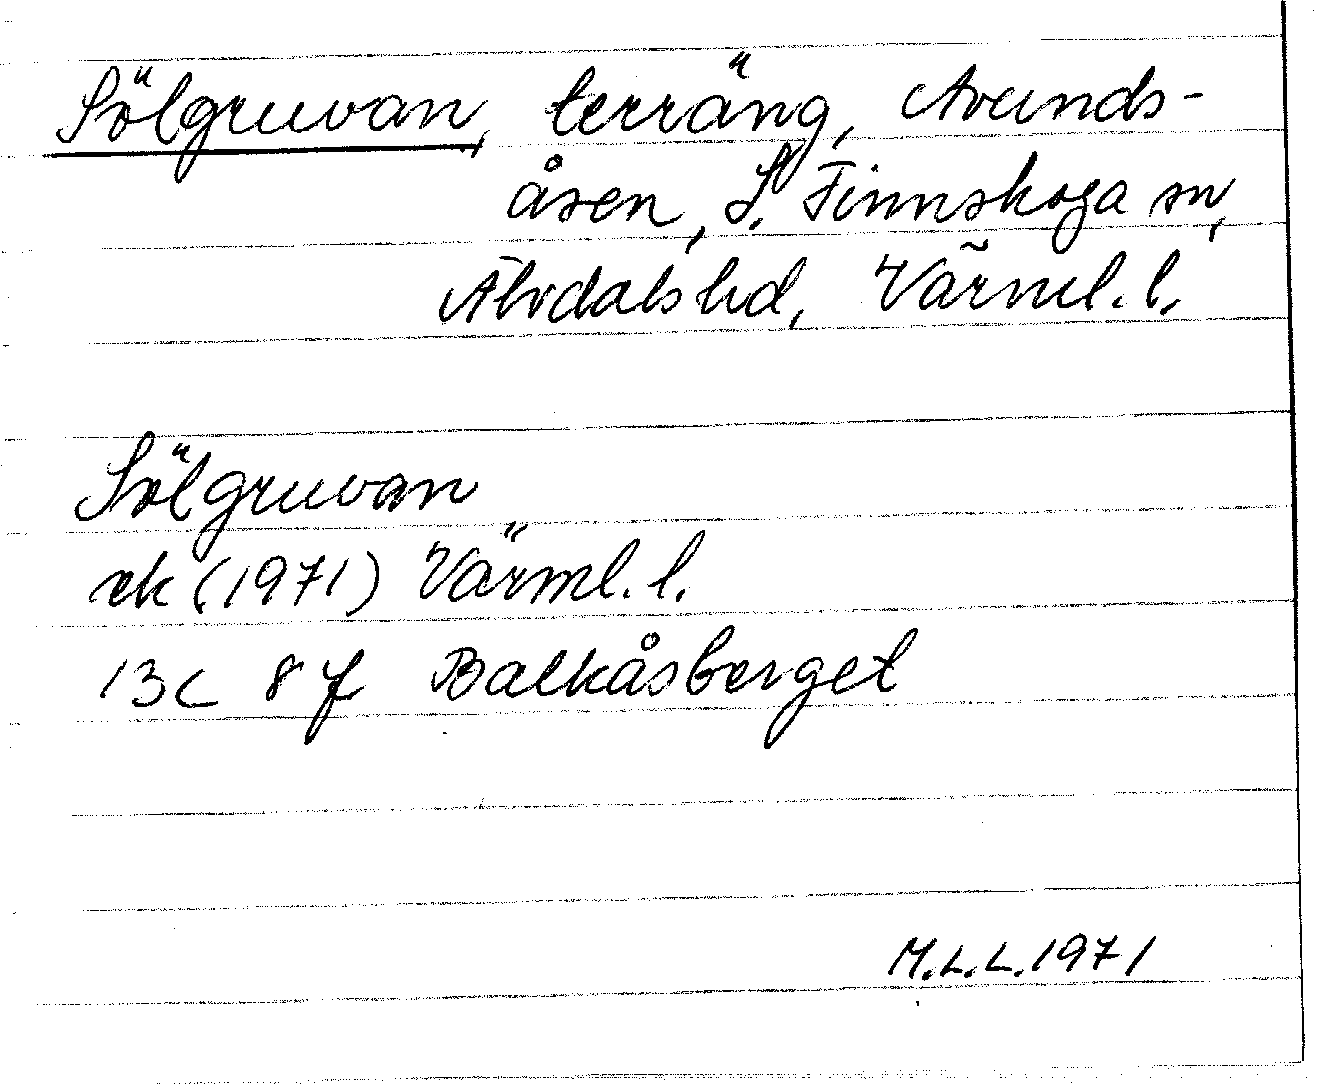 Sölgruvan, terräng, Avunds-
åsen, S. Finnskoga sn,
Älvdals hd, Värml. l.
Sölgruvan
ek (1971) Värml. l.
13C 8f Balkåsberget
M.L.L. 1971